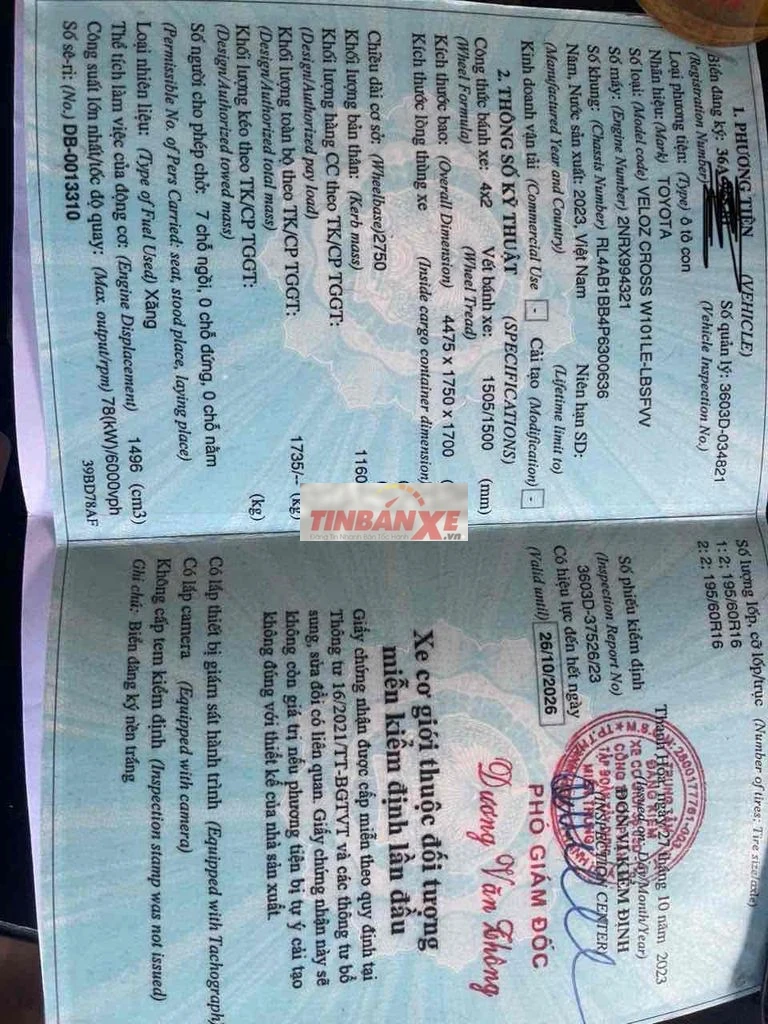 1. PHƯƠNG TIỆN (VEHICLE)
Biển đăng ký: 36A
(Registration Number)
Số quản lý: 3603D-034821
(Vehicle Inspection No.)
Loại phương tiện: (Type) ô tô con
Nhãn hiệu: (Mark) TOYOTA
Số loại: (Model code) VELOZ CROSS W101LE-LBSFVV
Số máy: (Engine Number) 2NRX994321
Số khung: (Chassis Number) RL4AB1BB4P6300636
Năm, Nước sản xuất: 2023, Việt Nam Niên hạn SD:
(Manufactured Year and Country) (Lifetime limit to)
Kinh doanh vận tải (Commercial Use) - Cải tạo (Modification) -
2. THÔNG SỐ KỸ THUẬT (SPECIFICATIONS)
Công thức bánh xe: 4x2 Vết bánh xe: 1505/1500 (mm)
(Wheel Formula) (Wheel Tread)
Kích thước bao: (Overall Dimension) 4475 x 1750 x 1700 (
Kích thước lòng thùng xe (Inside cargo container dimension)
Chiều dài cơ sở: (Wheelbase)2750
Khối lượng bản thân: (Kerb mass) 1160
Khối lượng hàng CC theo TK/CP TGGT:
(Design/Authorized pay load)
Khối lượng toàn bộ theo TK/CP TGGT: 1735/-- (kg)
(Design/Authorized total mass)
Khối lượng kéo theo TK/CP TGGT: (kg)
(Design/Authorized towed mass)
Số người cho phép chở: 7 chỗ ngồi, 0 chỗ đứng, 0 chỗ nằm
(Permissible No. of Pers Carried: seat, stood place, laying place)
Loại nhiên liệu: (Type of Fuel Used) Xăng
Thể tích làm việc của động cơ: (Engine Displacement) 1496 (cm3)
Công suất lớn nhất/tốc độ quay: (Max. output/rpm) 78(kW)/6000vph
Số sê-ri: (No.) DB-0013310 39BD78AF
TINBANXE.vn
Số lượng lốp, cỡ lốp/trục (Number of tires: Tire size/axle)
1: 2; 195/60R16
2: 2; 195/60R16
Số phiếu kiểm định
(Inspection Report No)
3603D-37526/23
Có hiệu lực đến hết ngày
(Valid until) 26/10/2026
Thanh Hóa, ngày 27 tháng 10 năm 2023
(Issued on: Day/Month/Year)
ĐƠN VỊ KIỂM ĐỊNH
INSPECTION CENTER
PHÓ GIÁM ĐỐC
Dương Văn Thông
Xe cơ giới thuộc đối tượng
miễn kiểm định lần đầu
Giấy chứng nhận được cấp miễn theo quy định tại
Thông tư 16/2021/TT-BGTVT và các thông tư bổ
sung, sửa đổi có liên quan. Giấy chứng nhận này sẽ
không còn giá trị nếu phương tiện bị tự ý cải tạo
không đúng với thiết kế của nhà sản xuất.
Có lắp thiết bị giám sát hành trình (Equipped with Tachograph)
Có lắp camera (Equipped with camera)
Không cấp tem kiểm định (Inspection stamp was not issued)
Ghi chú: Biển đăng ký nền trắng